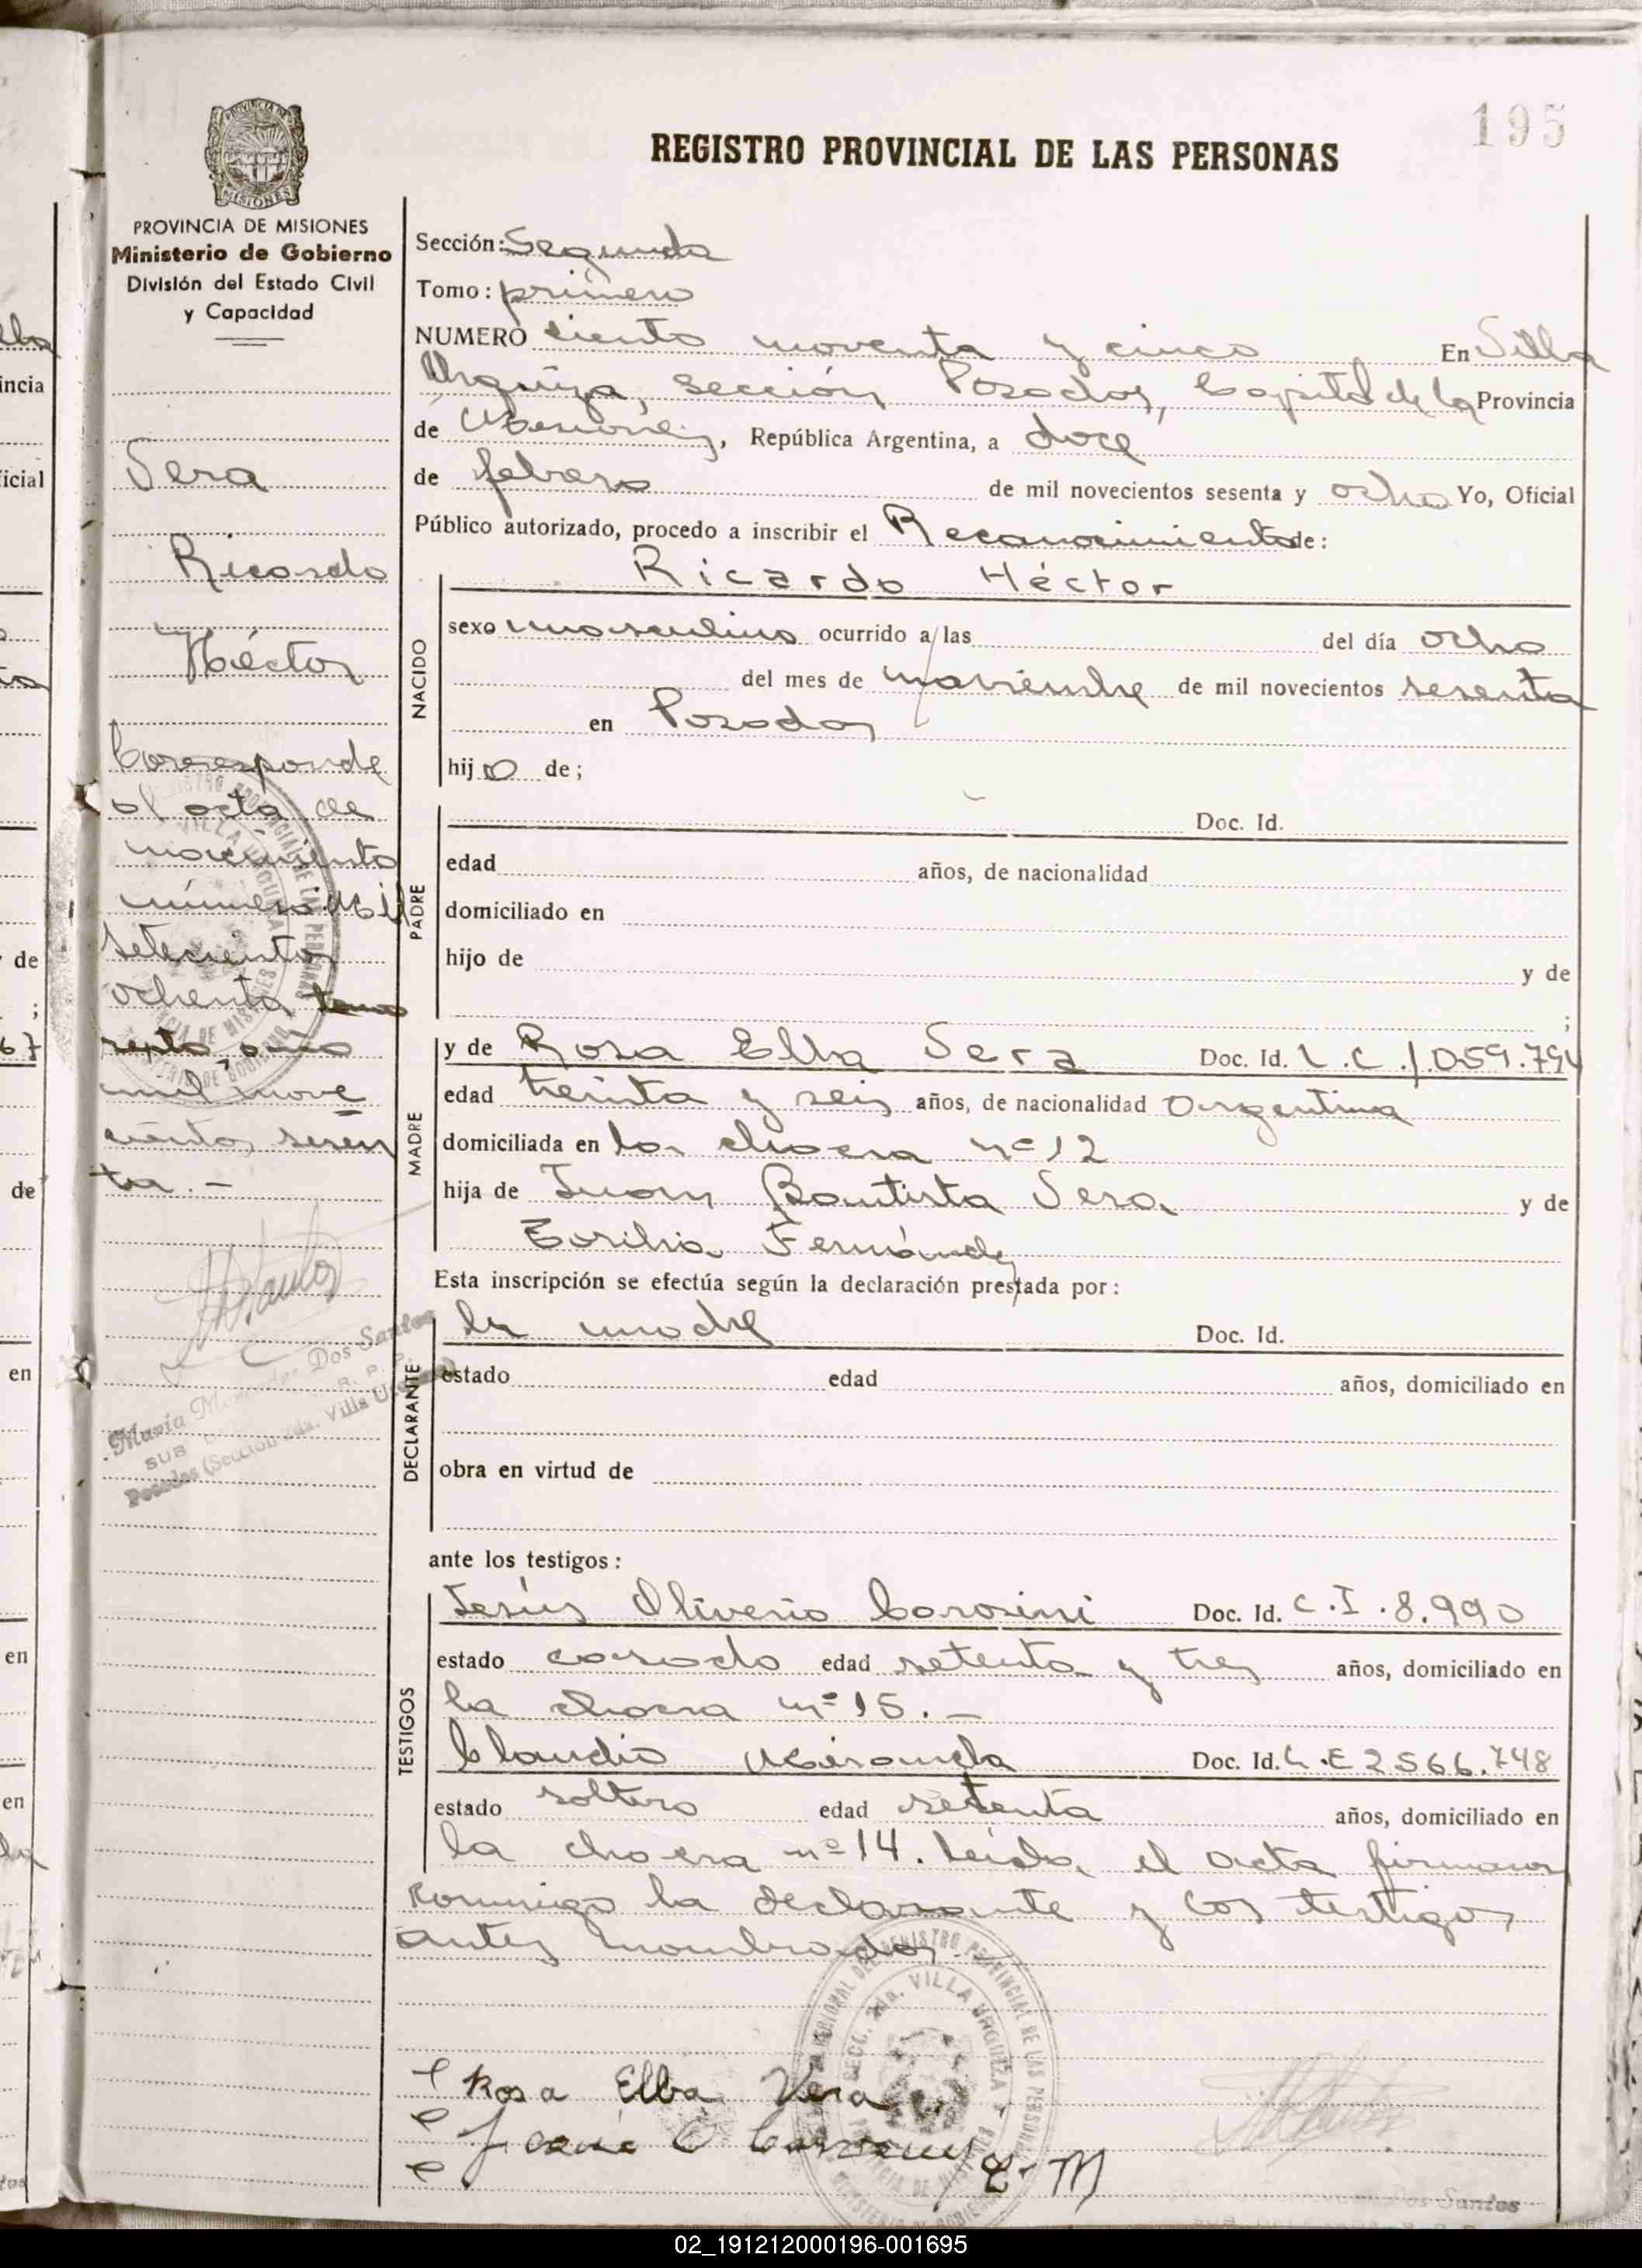 195
REGISTRO PROVINCIAL DE LAS PERSONAS
PROVINCIA DE MISIONES
Ministerio de Gobierno
División del Estado Civil
y Capacidad
Vera
Ricardo
Héctor
Corresponde
al acta de
nacimiento
número Mil
setecientos
ochenta tomo
sexto, año
mil nove
cientos sesen
ta.-
María Dos Santos
SUB
Posadas (Sección 2da. Villa Urquiza)
Sección: Segunda
Tomo: primero
NUMERO ciento noventa y cinco En Villa
Urquiza, sección Posadas, Capital de la Provincia
de Misiones, República Argentina, a doce
de febrero de mil novecientos sesenta y ocho Yo, Oficial
Público autorizado, procedo a inscribir el Reconocimiento de:
NACIDO
Ricardo Héctor
sexo masculino ocurrido a las del día ocho
del mes de noviembre de mil novecientos sesenta
en Posadas
hijo de;
PADRE
Doc. Id.
edad años, de nacionalidad
domiciliado en
hijo de y de
;
MADRE
y de Rosa Elba Vera Doc. Id. L.C.1.059.794
edad treinta y seis años, de nacionalidad Argentina
domiciliada en la chacra nº 12
hija de Juan Bautista Vera y de
Fernández
Esta inscripción se efectúa según la declaración prestada por:
DECLARANTE
la madre Doc. Id.
estado edad años, domiciliado en
obra en virtud de
ante los testigos:
TESTIGOS
Jesús Oliverio Doc. Id. C.I.8.990
estado casado edad setenta y tres años, domiciliado en
la chacra nº 15.-
Claudio Miranda Doc. Id. L.E 2566.748
estado soltero edad setenta años, domiciliado en
la chacra nº 14. Leída el acta firman
conmigo la declarante y los testigos
antes nombrados.
REGISTRO PROVINCIAL DE LAS PERSONAS
SECC. 2da. VILLA URQUIZA
Rosa Elba Vera
C. M
Dos Santos
02_191212000196-001695